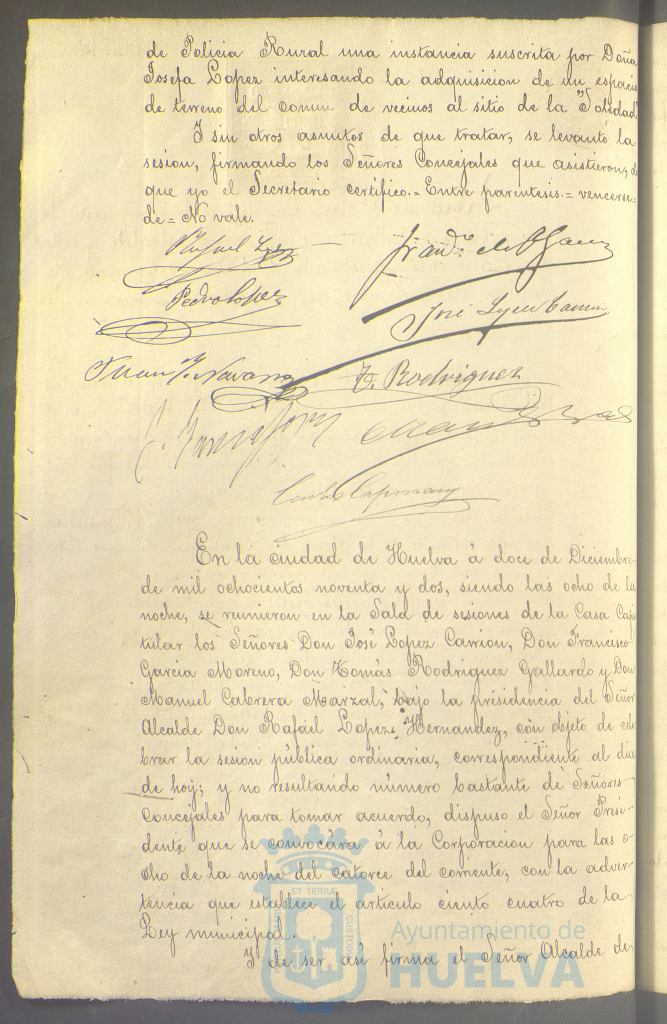 de Policia Rural una instancia suscrita por Doña
Josefa Lopez interesando la adquisicion de un espacio
de terreno del comun de vecinos al sitio de la "Soledad"
Y sin otros asuntos de que tratar, se levantó la
sesion, firmando los Señores Concejales que asistieron, de
que yo el Secretario certifico.= Entre parentesis.= vencerse=
de= No vale.
Rafael Lopez
Pedro Lopez
José Lopez Carrion
Juan F. Navarro
T. Rodriguez
En la ciudad de Huelva á doce de Diciembre
de mil ochocientos noventa y dos, siendo las ocho de la
noche, se reunieron en la Sala de sesiones de la Casa Capi
tular los Señores Don José Lopez Carrion, Don Francisco
Garcia Moreno, Don Tomás Rodriguez Gallardo y Don
Manuel Cabrera Marzal, bajo la presidencia del Señor
Alcalde Don Rafael Lopez Hernandez, con objeto de cele
brar la sesion pública ordinaria, correspondiente al dia
de hoy; y no resultando número bastante de Señores
Concejales para tomar acuerdo, dispuso el Señor Presi
dente que se convocára á la Corporacion para las o
cho de la noche del catorce del corriente, con la adver
tencia que establece el articulo ciento cuatro de la
Ley municipal.
Y de ser así firma el Señor Alcalde de
Ayuntamiento de
HUELVA